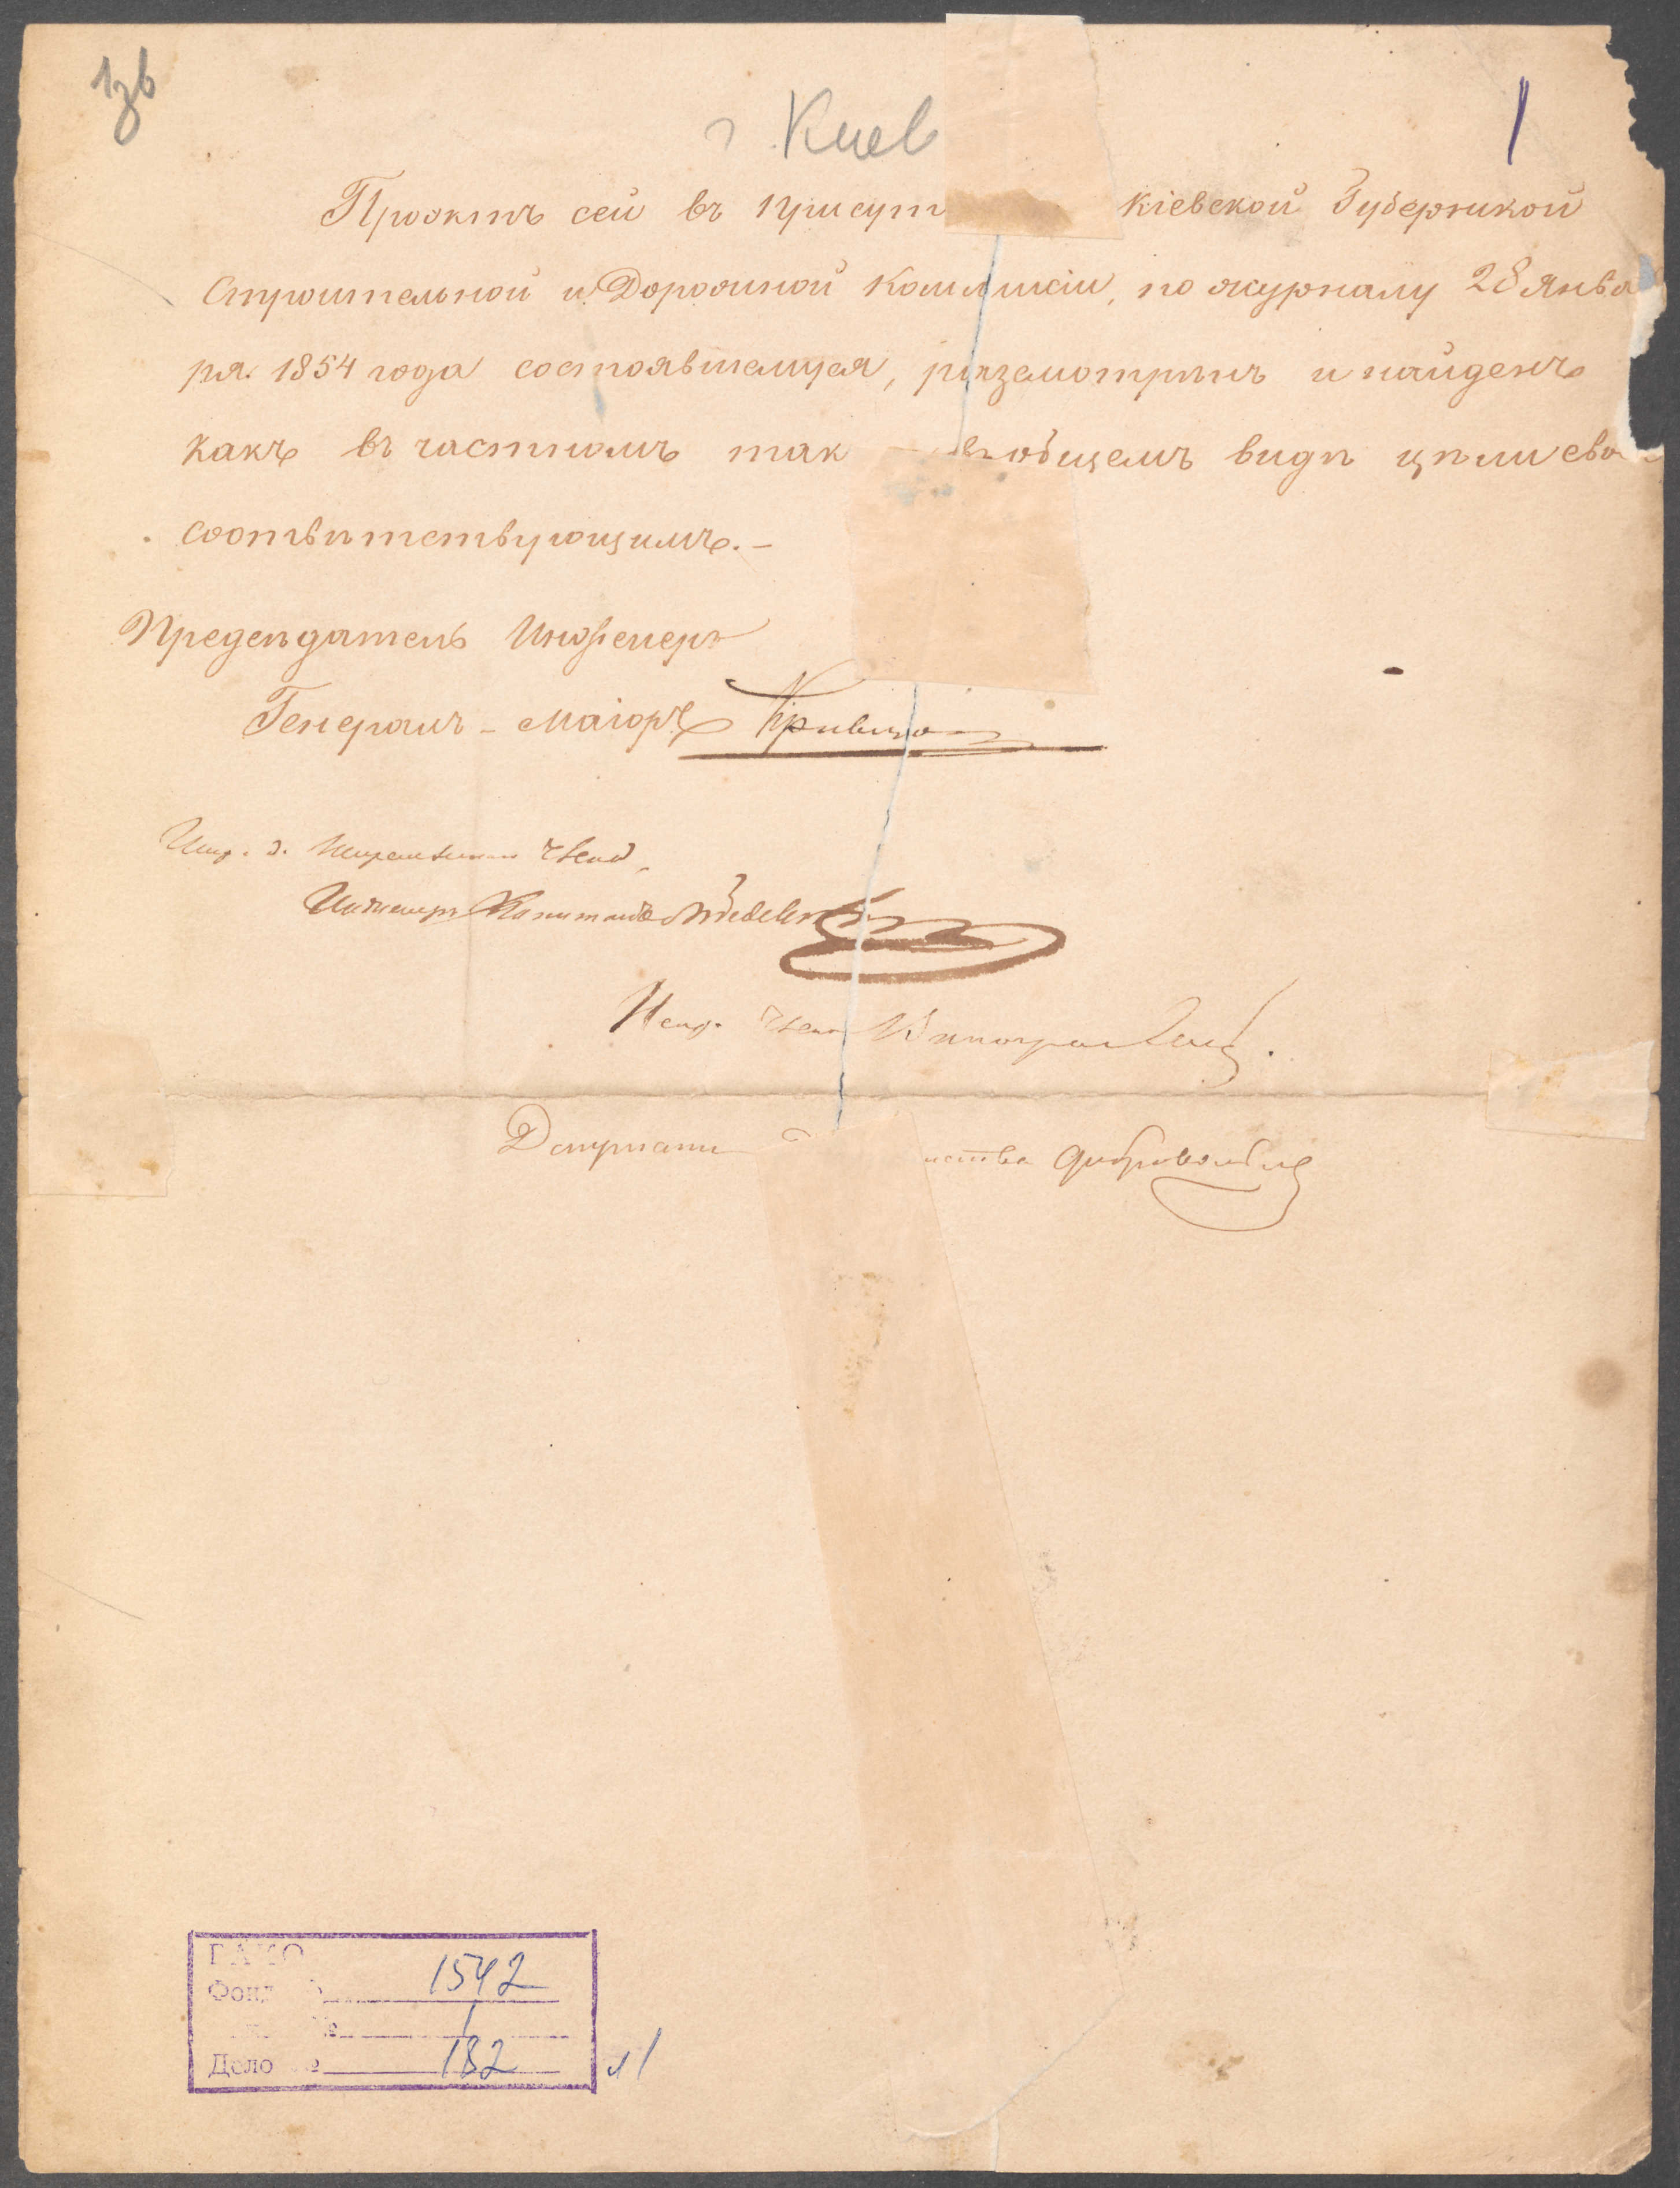 136
г. Киев
1
Проэктъ сей въ присут Кіевской Губернской
Строительной и Дорожной Коммисіи, по журналу 28 Янва
ря 1854 года состоявшемуся, разсмотрѣнъ и найденъ
какъ въ частномъ так въ общемъ видѣ цѣли сво
соотвѣтствующимъ.–
Предсѣдатель Инженеръ
Генералъ-Маіоръ Кривцо
Членъ
Инженеръ Капитанъ
Членъ
Депутатъ
ГАКО
Фонд 1542
№ 1
Дело № 182 л 1